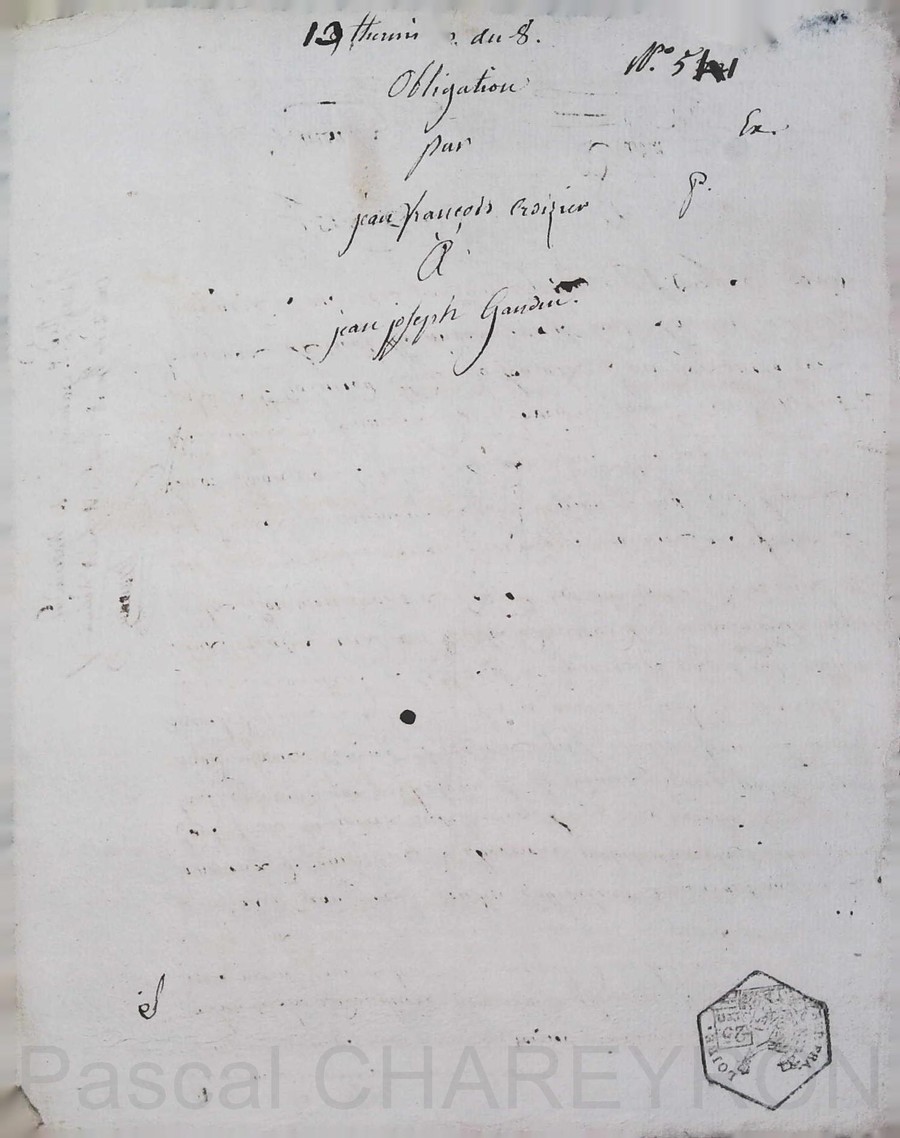 13 thermi r du 8.
N.º 541
Obligation
Ex.
par
P.
jean françois Croizier
À
jean joseph Gandin.
LOIRE.
25
Pascal CHAREYRON